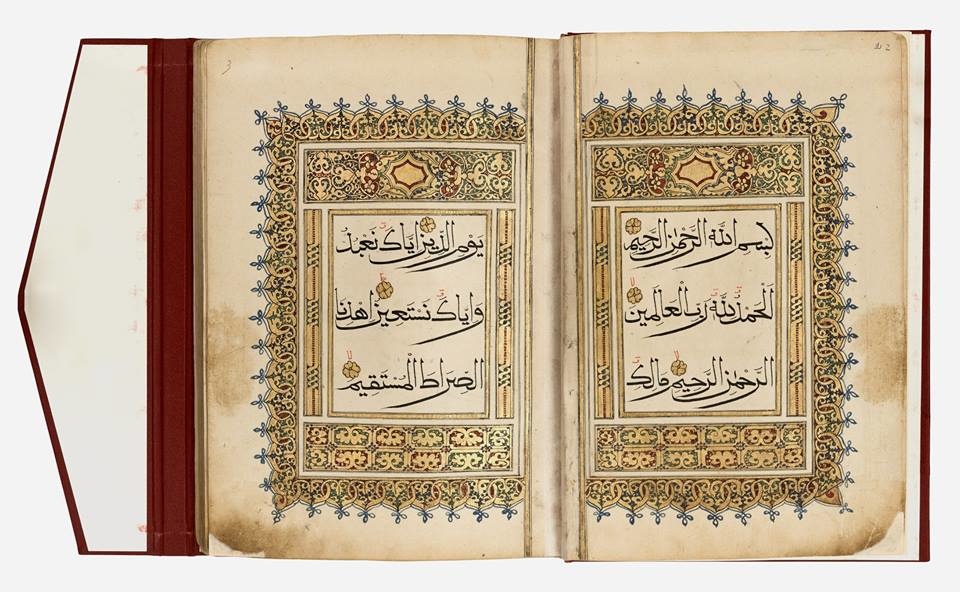 بسم الله الرحمن الرحيم
الحمد لله رب العالمين
الرحمن الرحيم مالك
يوم الدين اياك نعبد
واياك نستعين اهدنا
الصراط المستقيم
3